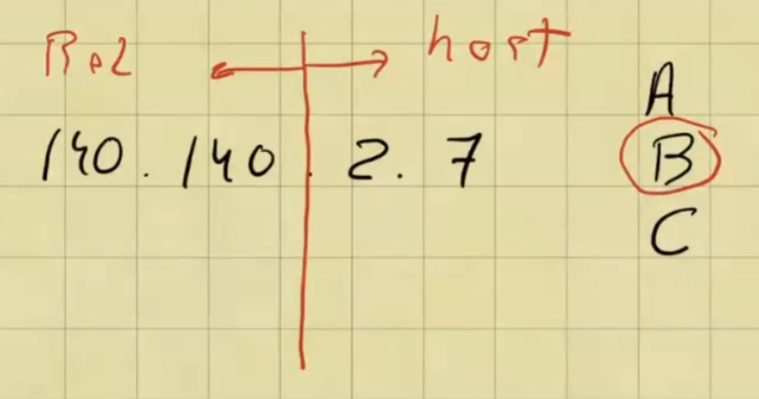 Red host
140.140.2.7
A
B
C